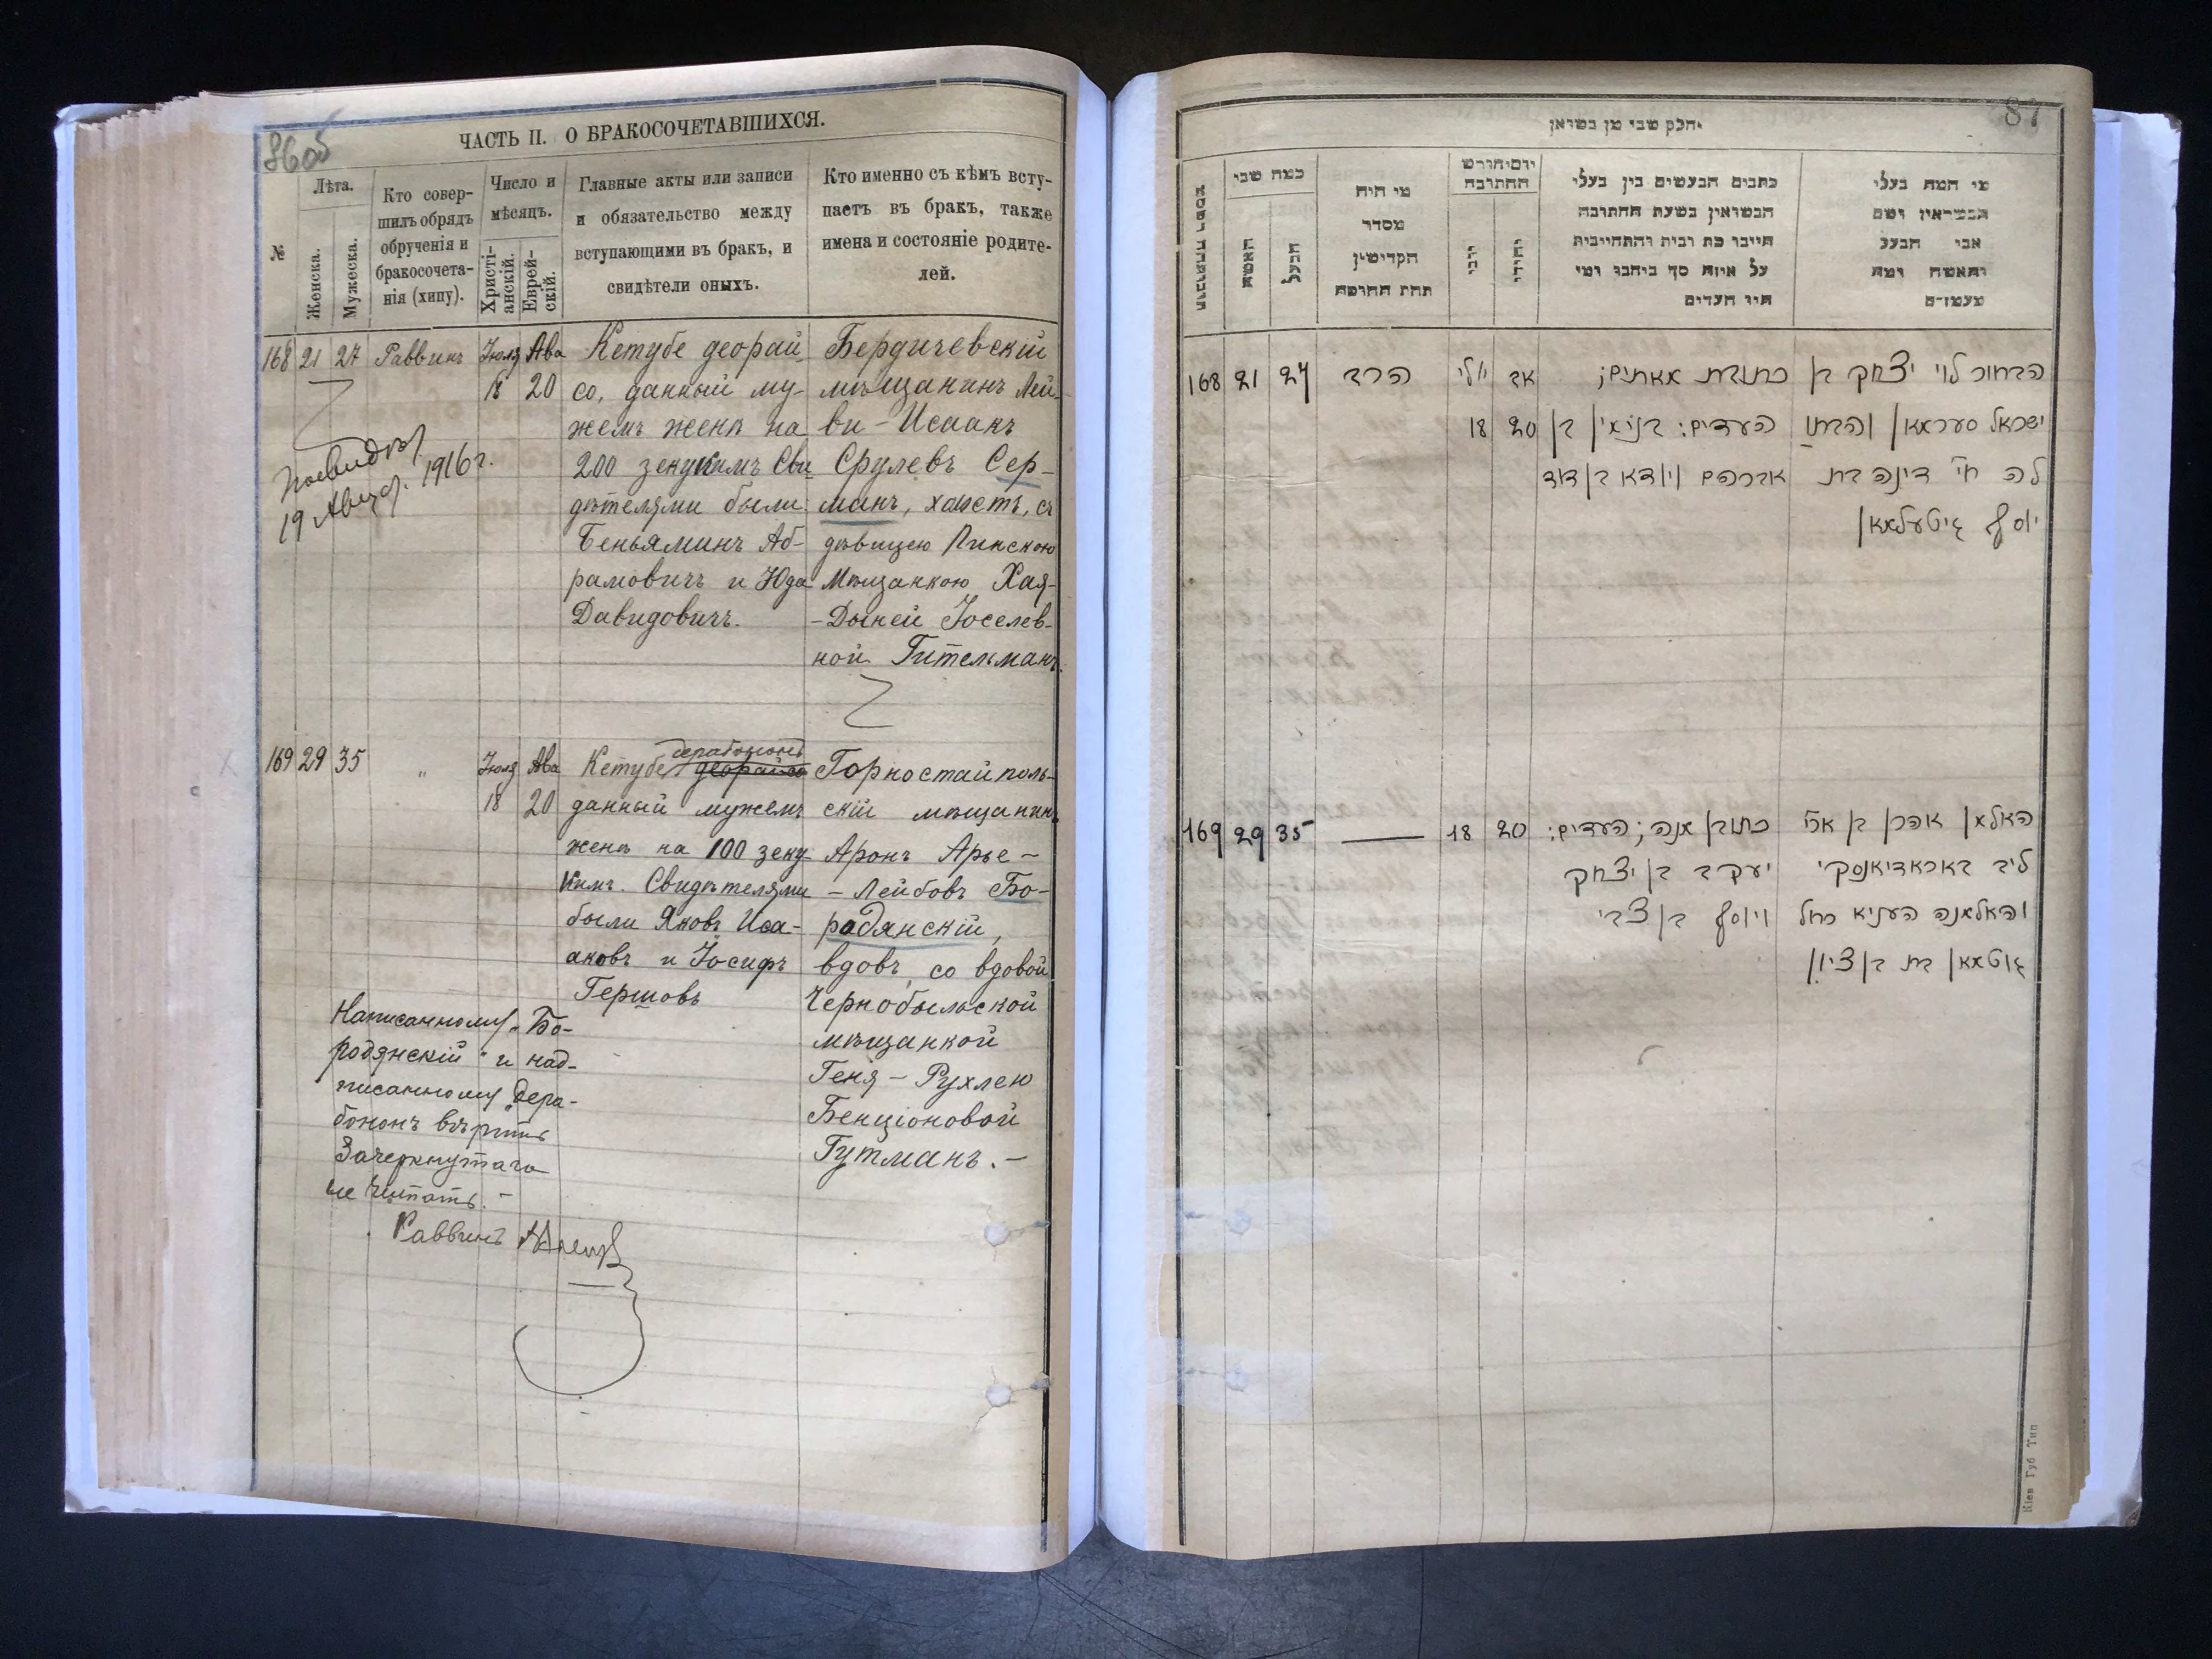 86об
ЧАСТЬ II. О БРАКОСОЧЕТАВШИХСЯ.
№
Лѣта.
Женска.
Мужеска.
Кто совер-
шилъ обрядъ
обрученія и
бракосочета-
нія (хипу).
Число и
мѣсяцъ.
Христі-
анскій.
Еврей-
скій.
Главные акты или записи
и обязательство между
вступающими въ бракъ, и
свидѣтели оныхъ.
Кто именно съ кѣмъ всту-
паетъ въ бракъ, также
имена и состояніе родите-
лей.
168 21 27 Раввинъ Іюля 18 Ава 20
Кетубе деорай
со, данный му-
жемъ женѣ на
200 зекукимъ Сви
дѣтелями были:
Беньяминъ Аб-
рамовичъ и Юда
Давидовичъ.
Бердичевскій
мѣщанинъ Лей-
ви-Исаакъ
Срулевъ Сер-
манъ, холостъ, съ
дѣвицею Пинскою
Мѣщанкою Хая-
-Дыней Іоселев-
ной Гительманъ.
19 1916 г.
169 29 35 " Іюля 18 Ава 20
Кетубе дерабононъ деорайсо
данный мужемъ
женѣ на 100 зеку
кимъ. Свидѣтелями
были Яковъ Иса-
аковъ и Іосифъ
Гершовъ
Горностайполь-
скій мѣщанинъ
Аронъ Арье-
-Лейбовъ Бо-
родянскій,
вдовъ, со вдовой
Чернобыльской
мѣщанкой
Геня-Рухлею
Бенціоновой
Гутманъ.-
Написанному „Бо-
родянскій" и над-
писанному „дера-
бононъ вѣрить
Зачеркнутаго
не читать.-
Раввинъ
87
חלק שני מן נשואין
כמה שני
האשה
הבעל
מי היה
מסדר
הקדושין
תחת החופה
יום וחודש
החתונה
יוני
יהודי
כתבים הנעשים בין בעלי
הנשואין בשעת החתונה
היינו כת רבית והתחייבות
על איזה סך ביחבו ומי
היו העדים
מי המה בעלי
הנשואין ושם
אבי הבעל
והאשה ומה
מעמדם
168 21 27 הרב יולי 18 אב 20
כתובת מאתים;
העדים: בנימין בן
אברהם ויודא בן דוד
הבחור לוי יצחק בן
ישראל סערמאן והבתו
לה חי' דינה בת
יוסף גיטעלמאן
169 29 35 — 18 20
כתובן מנה; העדים:
יעקב בן יצחק
ויוסף בן צבי
האלמן אהרן בן ארי'
ליב באראדיאנסקי
והאלמנה העניא רחל
גוטמאן בת בן ציון
Кіев Губ Тип